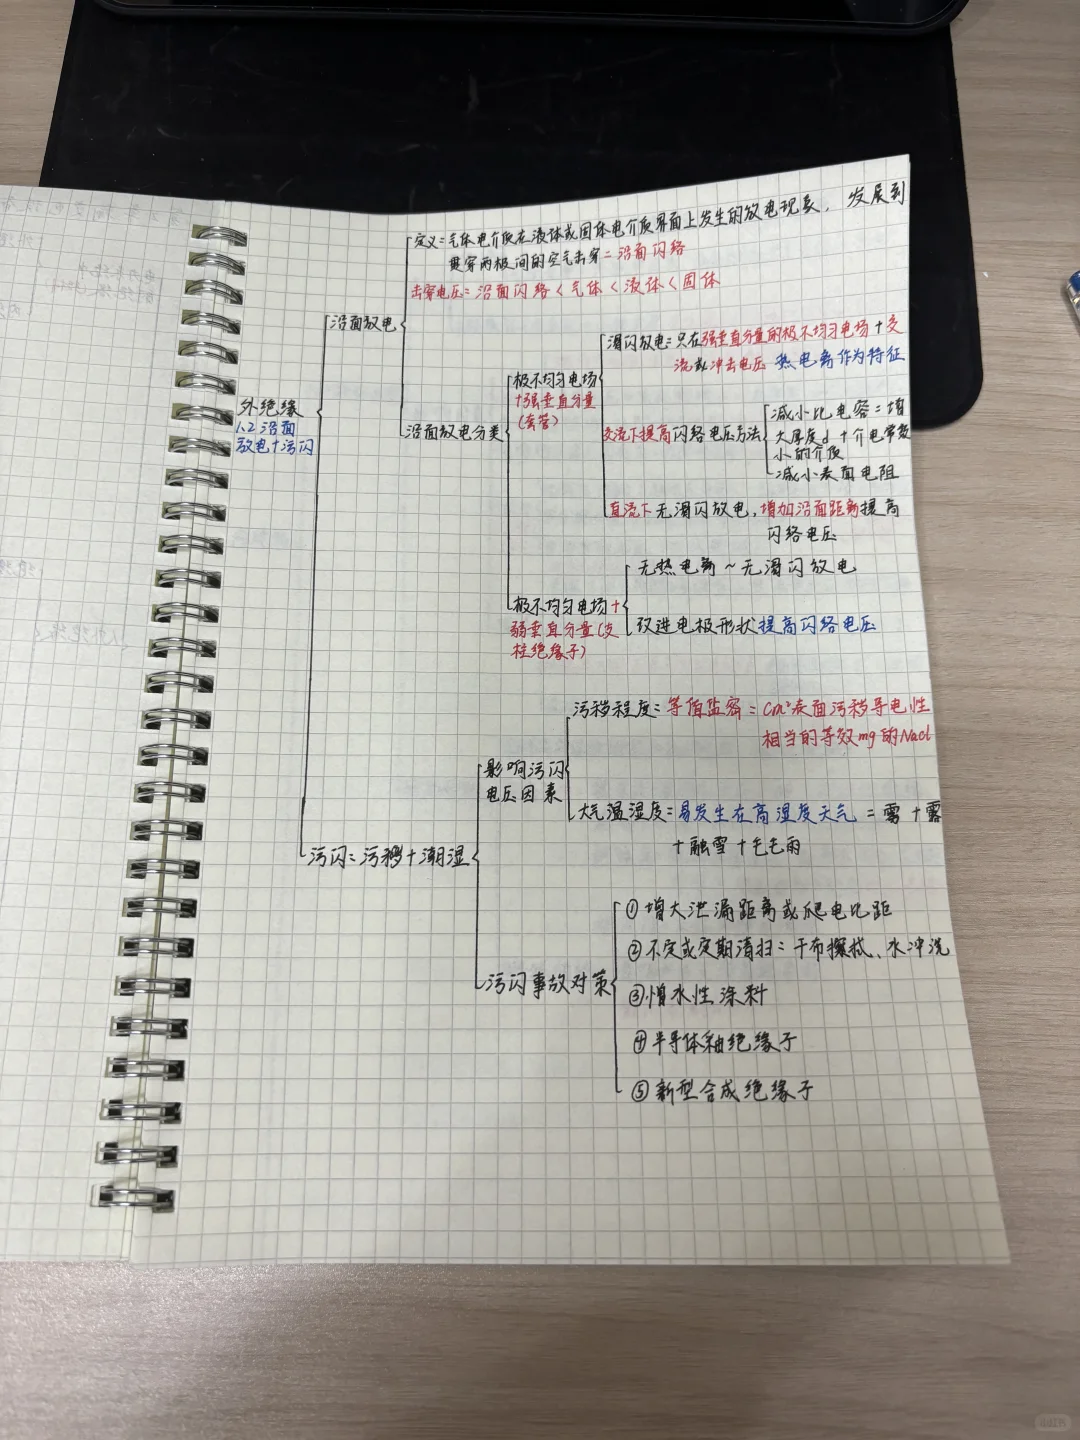 定义:气体电介质在液体或固体电介质界面上发生的放电现象,发展到
贯穿两极间的空气击穿=沿面闪络
击穿电压:沿面闪络<气体<液体<固体
沿面放电
滑闪放电:只在强垂直分量的极不均匀电场+交
流或冲击电压 热电离作为特征
极不均匀电场
+强垂直分量
(套管)
外绝缘
1.2沿面
放电+污闪
沿面放电分类
交流下提高闪络电压方法
减小比电容=增
大厚度d+介电常数
小的介质
减小表面电阻
直流下无滑闪放电,增加沿面距离提高
闪络电压
无热电离~无滑闪放电
极不均匀电场+
弱垂直分量(支
柱绝缘子)
改进电极形状提高闪络电压
污秽程度:等值盐密=cm²表面污秽导电性
相当的等效mg的Nacl
影响污闪
电压因素
大气温湿度:易发生在高湿度天气=雾+露
+融雪+毛毛雨
污闪:污秽+潮湿
污闪事故对策
①增大泄漏距离或爬电比距
②不定或定期清扫:干布擦拭、水冲洗
③憎水性涂料
④半导体釉绝缘子
⑤新型合成绝缘子